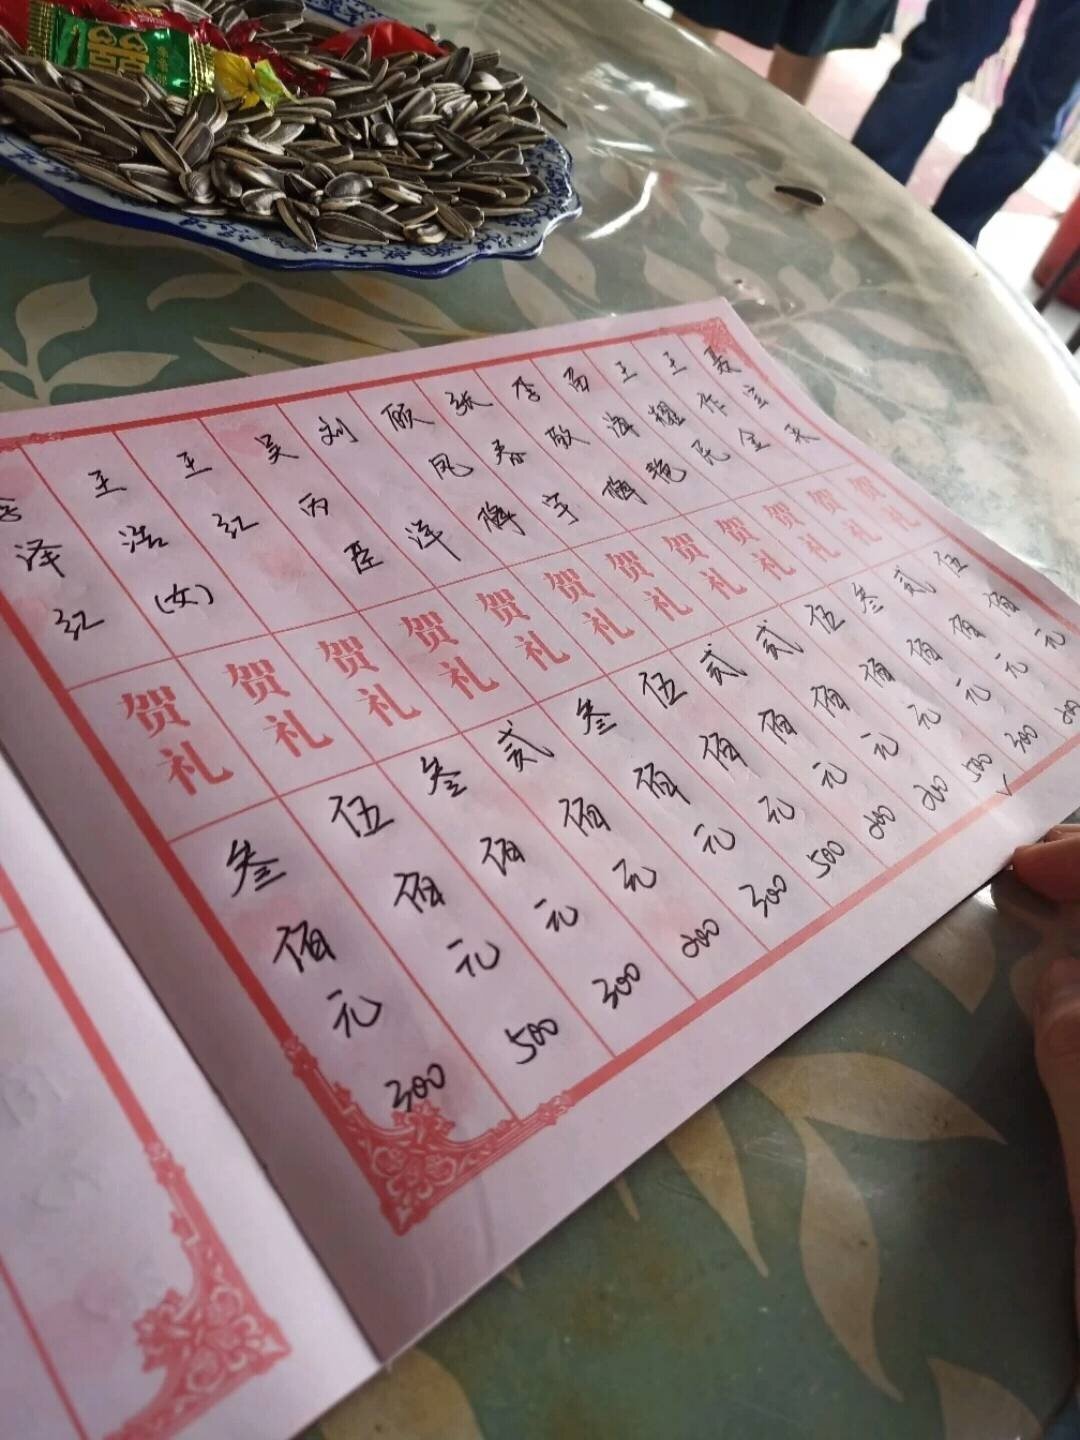 贺礼 伍佰元
王作金 贺礼 贰佰元 200
王耀民 贺礼 叁佰元 300
海艳 贺礼 伍佰元 500
李敬梅 贺礼 贰佰元 200
张春宇 贺礼 贰佰元 200
顾凤梅 贺礼 伍佰元 500
刘洋 贺礼 叁佰元 300
吴丙臣 贺礼 贰佰元 200
王红 贺礼 叁佰元 300
王浩(女) 贺礼 伍佰元 500
李泽红 贺礼 叁佰元 300